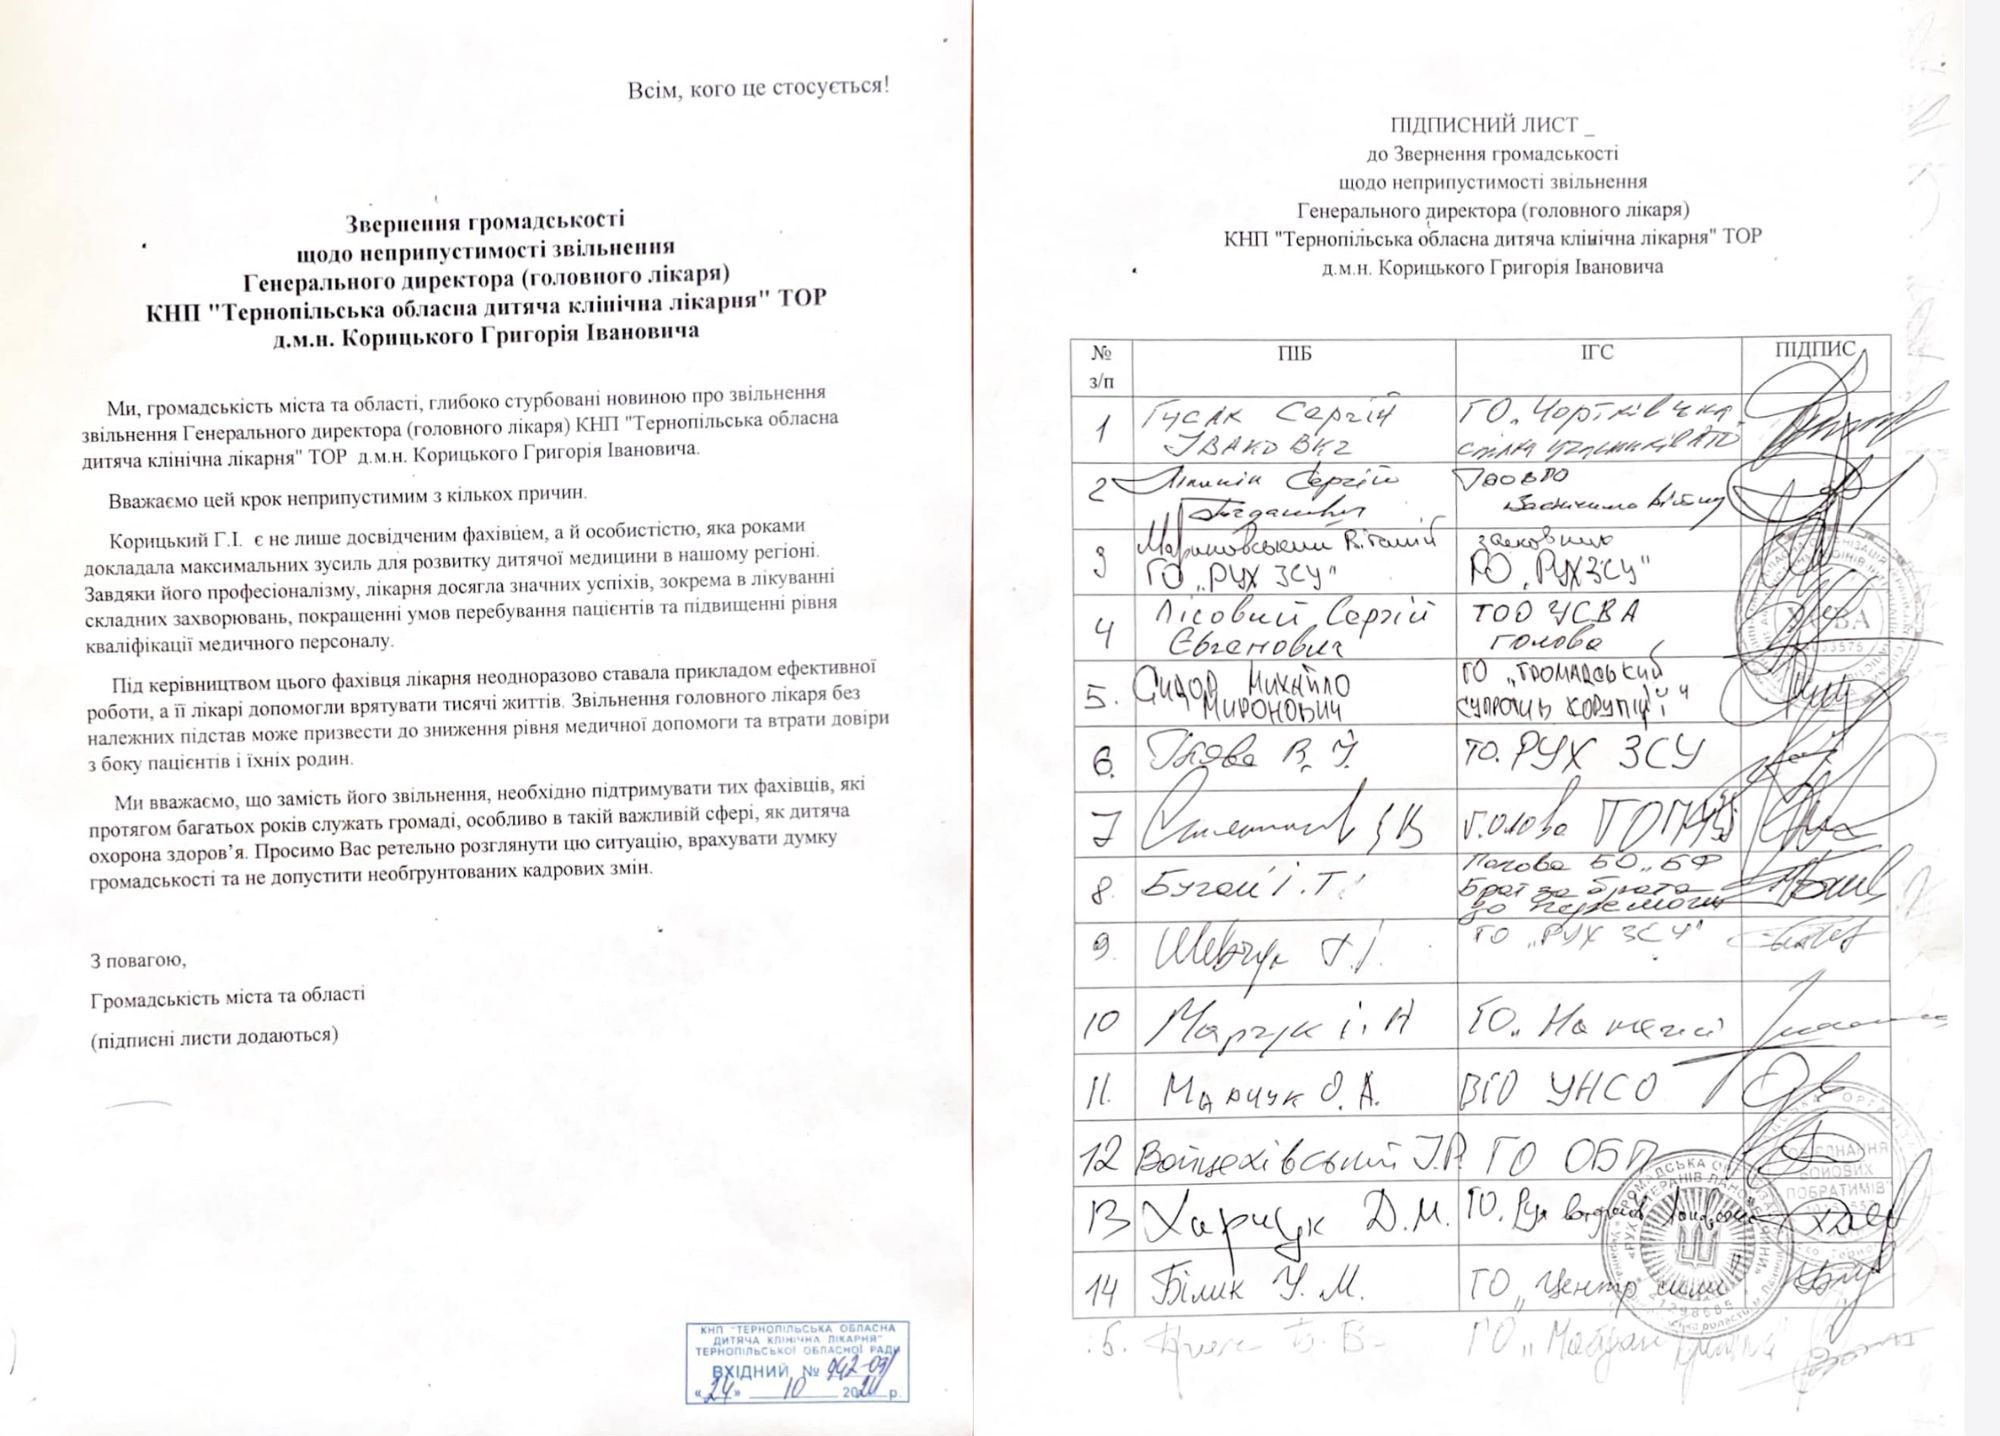 Всім, кого це стосується!
Звернення громадськості
щодо неприпустимості звільнення
Генерального директора (головного лікаря)
КНП "Тернопільська обласна дитяча клінічна лікарня" ТОР
д.м.н. Корицького Григорія Івановича
Ми, громадськість міста та області, глибоко стурбовані новиною про звільнення
звільнення Генерального директора (головного лікаря) КНП "Тернопільська обласна
дитяча клінічна лікарня" ТОР д.м.н. Корицького Григорія Івановича.
Вважаємо цей крок неприпустимим з кількох причин.
Корицький Г.І. є не лише досвідченим фахівцем, а й особистістю, яка роками
докладала максимальних зусиль для розвитку дитячої медицини в нашому регіоні.
Завдяки його професіоналізму, лікарня досягла значних успіхів, зокрема в лікуванні
складних захворювань, покращенні умов перебування пацієнтів та підвищенні рівня
кваліфікації медичного персоналу.
Під керівництвом цього фахівця лікарня неодноразово ставала прикладом ефективної
роботи, а її лікарі допомогли врятувати тисячі життів. Звільнення головного лікаря без
належних підстав може призвести до зниження рівня медичної допомоги та втрати довіри
з боку пацієнтів і їхніх родин.
Ми вважаємо, що замість його звільнення, необхідно підтримувати тих фахівців, які
протягом багатьох років служать громаді, особливо в такій важливій сфері, як дитяча
охорона здоров’я. Просимо Вас ретельно розглянути цю ситуацію, врахувати думку
громадськості та не допустити необґрунтованих кадрових змін.
З повагою,
Громадськість міста та області
(підписні листи додаються)
КНП "ТЕРНОПІЛЬСЬКА ОБЛАСНА
ДИТЯЧА КЛІНІЧНА ЛІКАРНЯ"
ТЕРНОПІЛЬСЬКОЇ ОБЛАСНОЇ РАДИ
ВХІДНИЙ № 942-09
«24» 10 2024 р.
ПІДПИСНИЙ ЛИСТ _
до Звернення громадськості
щодо неприпустимості звільнення
Генерального директора (головного лікаря)
КНП "Тернопільська обласна дитяча клінічна лікарня" ТОР
д.м.н. Корицького Григорія Івановича
№ з/п ПІБ ІГС ПІДПИС
1 Гусак Сергій ГО „Чортківська
спілка учасників АТО
2 Сергій
Богданович
3 Мариновський Віталій засновник
ГО „РУХ ЗСУ" ГО „РУХ ЗСУ"
4 Лісовий Сергій ТОО УСВА
Євгенович голова
5. Сидор Михайло ГО „ГРОМАДСЬКИЙ
Миронович СУПРОТИВ КОРУПЦІЇ"
6. В. Й. ГО. РУХ ЗСУ
7 голова
8. Бугай І. Т. Голова БО „БФ
Брат за брата
до перемоги
9. Шевчук ГО „РУХ ЗСУ"
10 Марчук І. А ГО „
11. Марчук О. А. ВГО УНСО
12 Войцехівський І.Р. ГО ОБП
13 Харчук Д.М. ГО. Рух
14 Білик У. М. ГО „Центр сили
ГО „Майдан